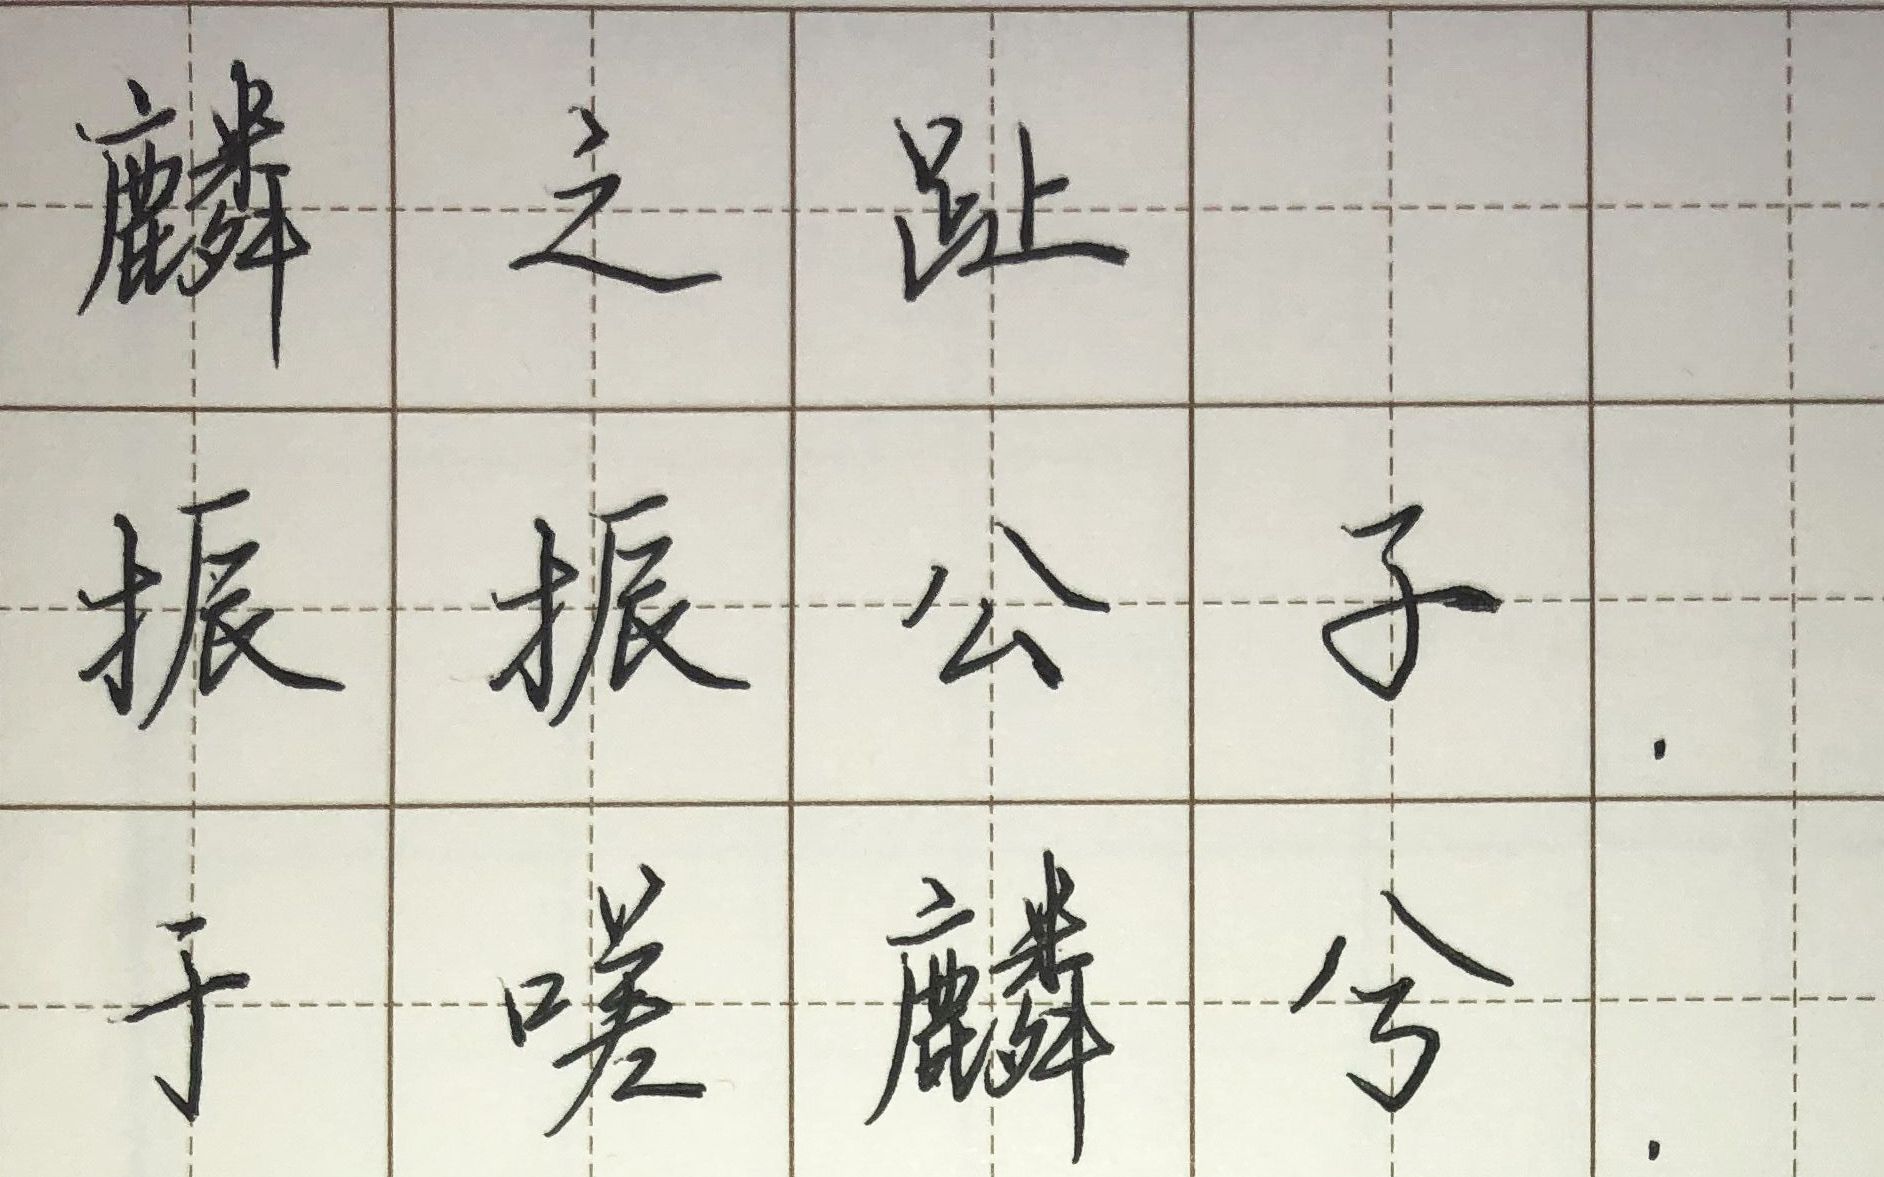 麟之趾
振振公子.
于嗟麟兮.